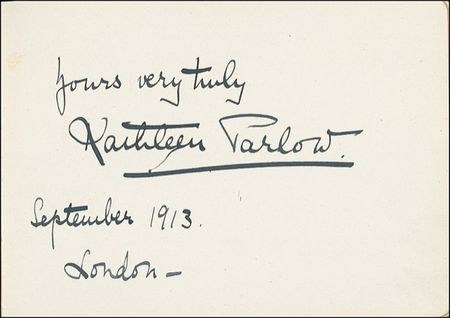 Yours very truly
Kathleen Parlow.
September 1913.
London –